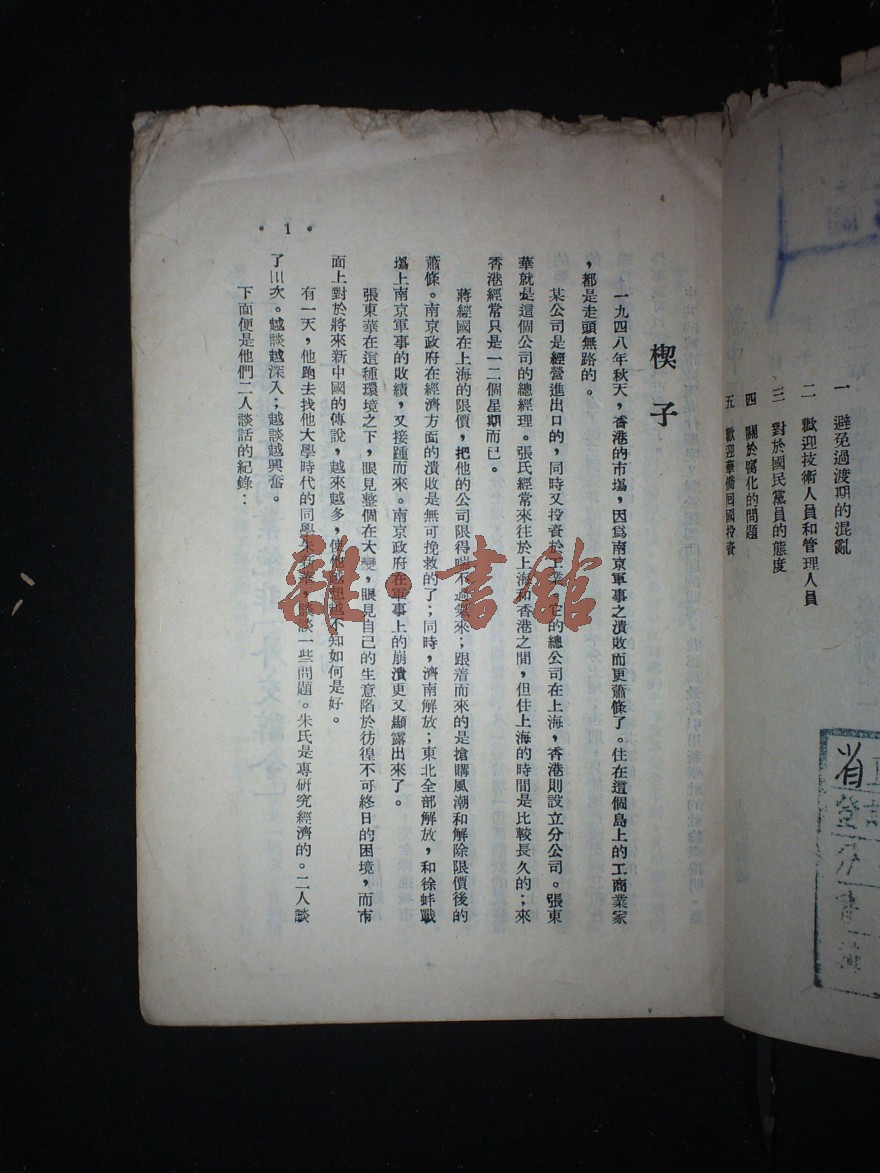 一 避免過渡期的混亂
二 歡迎技術人員和管理人員
三 對於國民黨員的態度
四 關於腐化的問題
五 歡迎華僑回國投資
楔子
一九四八年秋天，香港的市場，因爲南京軍事之潰敗而更蕭條了。住在這個島上的工商業家
，都是走頭無路的。
某公司是經營進出口的，同時又投資於工業，它的總公司在上海，香港則設立分公司。張東
華就是這個公司的總經理。張氏經常來往於上海和香港之間，但住上海的時間是比較長久的；來
香港經常只是一二個星期而已。
蔣經國在上海的限價，把他的公司限得喘不過氣來；跟着而來的是搶購風潮和解除限價後的
蕭條。南京政府在經濟方面的潰敗是無可挽救的了；同時，濟南解放；東北全部解放，和徐蚌戰
場上南京軍事的敗績，又接踵而來。南京政府在軍事上的崩潰更又顯露出來了。
張東華在這種環境之下，眼見整個在大變，眼見自己的生意陷於彷徨不可終日的困境，而市
面上對於將來新中國的傳說，越來越多，使他越想越不知如何是好。
有一天，他跑去找他大學時代的同學朱，談談一些問題。朱氏是專研究經濟的。二人談
了三次。越談越深入；越談越興奮。
下面便是他們二人談話的紀錄：
• 1 •
雜·書館
省
登